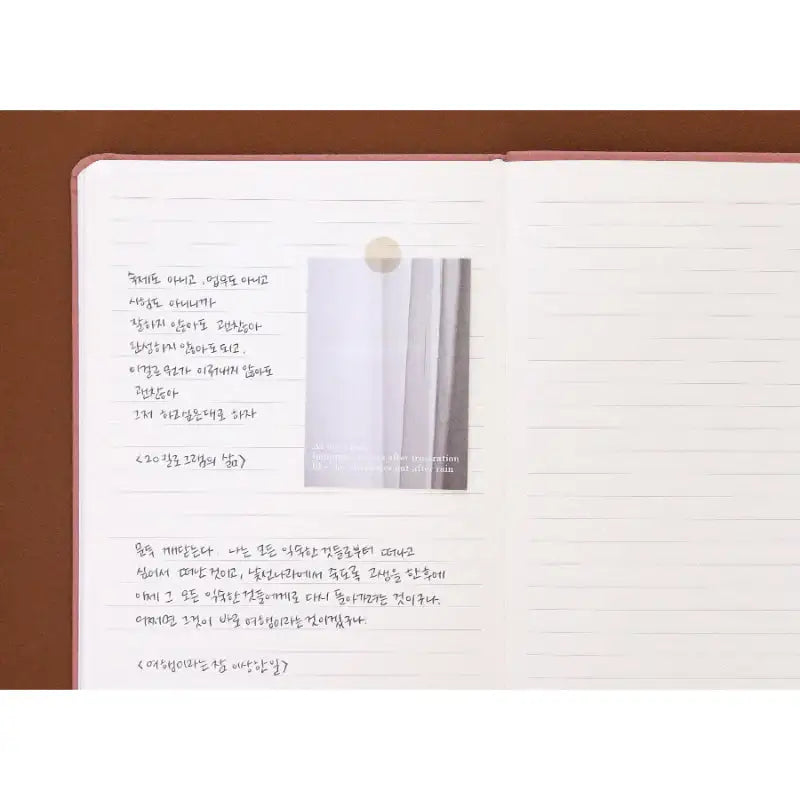 숙제도 아니고, 업무도 아니고
시험도 아니니까
잘하지 않아도 괜찮아
완성하지 않아도 되고,
이걸로 뭔가 이뤄내지 않아도
괜찮아
그저 하고싶은대로 하자
<20킬로그램의 삶>
after frustration
out after rain
문득 깨닫는다. 나는 모든 익숙한 것들로부터 떠나고
싶어서 떠난 것이고, 낯선나라에서 죽도록 고생을 한후에
이제 그 모든 익숙한 것들에게로 다시 돌아가려는 것이구나.
어쩌면 그것이 바로 여행이라는것이겠구나.
<여행이라는 참 이상한 일>